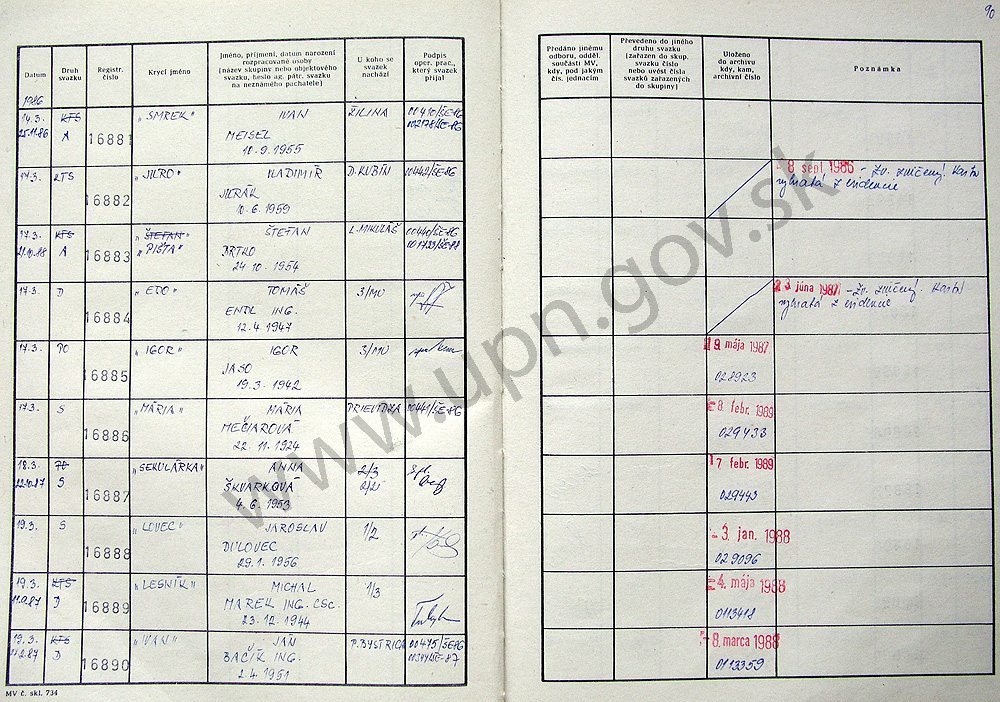 90
Datum
Druh svazku
Registr. číslo
Krycí jméno
Jméno, příjmení, datum narození rozpracované osoby [název skupiny nebo objektového svazku, heslo ag. pátr. svazku na neznámého pachatele]
U koho se svazek nachází
Podpis oper. prac., který svazek přijal
Předáno jinému odboru, odděl. součásti MV, kdy, pod jakým čís. jednacím
Převedeno do jiného druhu svazku [zařazen do skup. svazku číslo nebo uvést čísla svazků zařazených do skupiny]
Uloženo do archivu kdy, kam, archivní číslo
Poznámka
1986
14.3. KTS "SMREK" IVAN ŽILINA 00410/ŠE-86
25.11.86 A 16881 MEISEL 002178/ŠE-86
10.9.1955
17.3. KTS "JURO" VLADIMÍR D. KUBÍN 00442/ŠE-86 - 8 sept 1986 - Zv. zničený. Karta
16882 JURÁK vybratá z evidencie
10.6.1959
17.3. KTS "ŠTEFAN" ŠTEFAN L. MIKULÁŠ 00440/ŠE-86
21.10.88 A 16883 "PIŠTA" BRTKO
24.10.1954
17.3. D "EDO" TOMÁŠ 3/MU 2 3 júna 1987 - Zv. zničený. Karta
16884 ENDL ING. vybratá z evidencie
12.4.1947
17.3. PO "IGOR" IGOR 3/MU 19 mája 1987
16885 JASO 028923
19.3.1942
17.3. S "MÁRIA" MÁRIA PRIEVIDZA 00441/ŠE-86 - 8. febr. 1989
16886 MEČIAROVÁ 029433
22.11.1924
18.3. PO "SEKULÁRKA" ANNA 2/3 17 febr. 1989
22.10.87 S 16887 ŠKVARKOVÁ 2/2 029443
4.6.1953
19.3. S "LOVEC" JAROSLAV 1/2 - 3. jan. 1988
16888 DULOVEC 029096
29.1.1956
19.3. KTS "LESNÍK" MICHAL 1/3 - 4. mája 1988
D 16889 MAREK ING. CSC. 0113418
23.12.1944
19.3. KTS "IVAN" JÁN P. BYSTRICA 00475/ŠE-86 - 8. marca 1988
D 16890 BAČÍK ING. 0113359
2.4.1951
MV č. skl. 734
www.upn.gov.sk